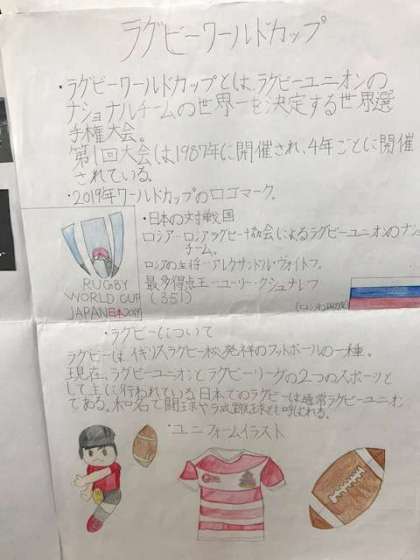 ラグビーワールドカップ
・ラグビーワールドカップとは、ラグビーユニオンの
ナショナルチームの世界一を決定する世界選
手権大会。
第1回大会は1987年に開催され、4年ごとに開催
されている。
・2019年ワールドカップのロゴマーク。
・日本の対戦国
ロシアーロシアラグビー協会によるラグビーユニオンのナシ
チーム。
ロシアの主将ーアレクサンドル・ヴォイトフ。
最多得点王ーユーリー・クシュナレフ
(351)
RUGBY
WORLD CUP
JAPAN日本2019
・ラグビーについて
ラグビーは、イギリスラグビー校発祥のフットボールの一種。
現在、ラグビーユニオンとラグビーリーグの2つのスポーツと
して主に行われている。日本でのラグビーは通常ラグビーユニオン
である。和名で闘球や
球と呼ばれる。
・ユニフォームイラスト